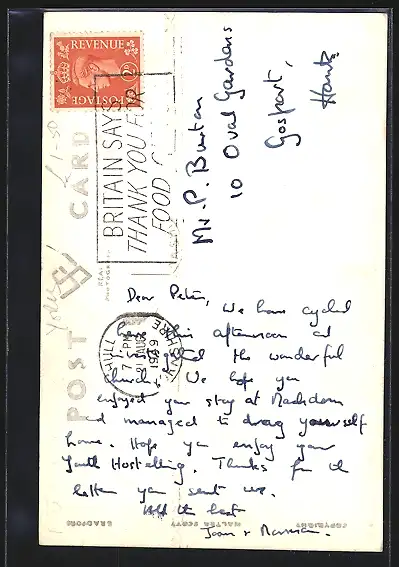 REVENUE
POSTAGE
BRITAIN SAYS
THANK YOU FOR
FOOD
HULL
YORKSHIRE
PM
AUG
1949
POST CARD
REAL
PHOTOGRAPH
£1-50
Mr. P. Burton
10 Oval Gardens
Gosport,
Hants
Dear Peter,
We have cycled
here this afternoon and
the wonderful
church. We hope you
enjoyed your stay at
and managed to drag yourself
home. Hope you enjoy your
Youth Hostelling. Thanks for the
letter you sent us.
All the best
Joan &
BRADFORD
WALTER SCOTT
COPYRIGHT